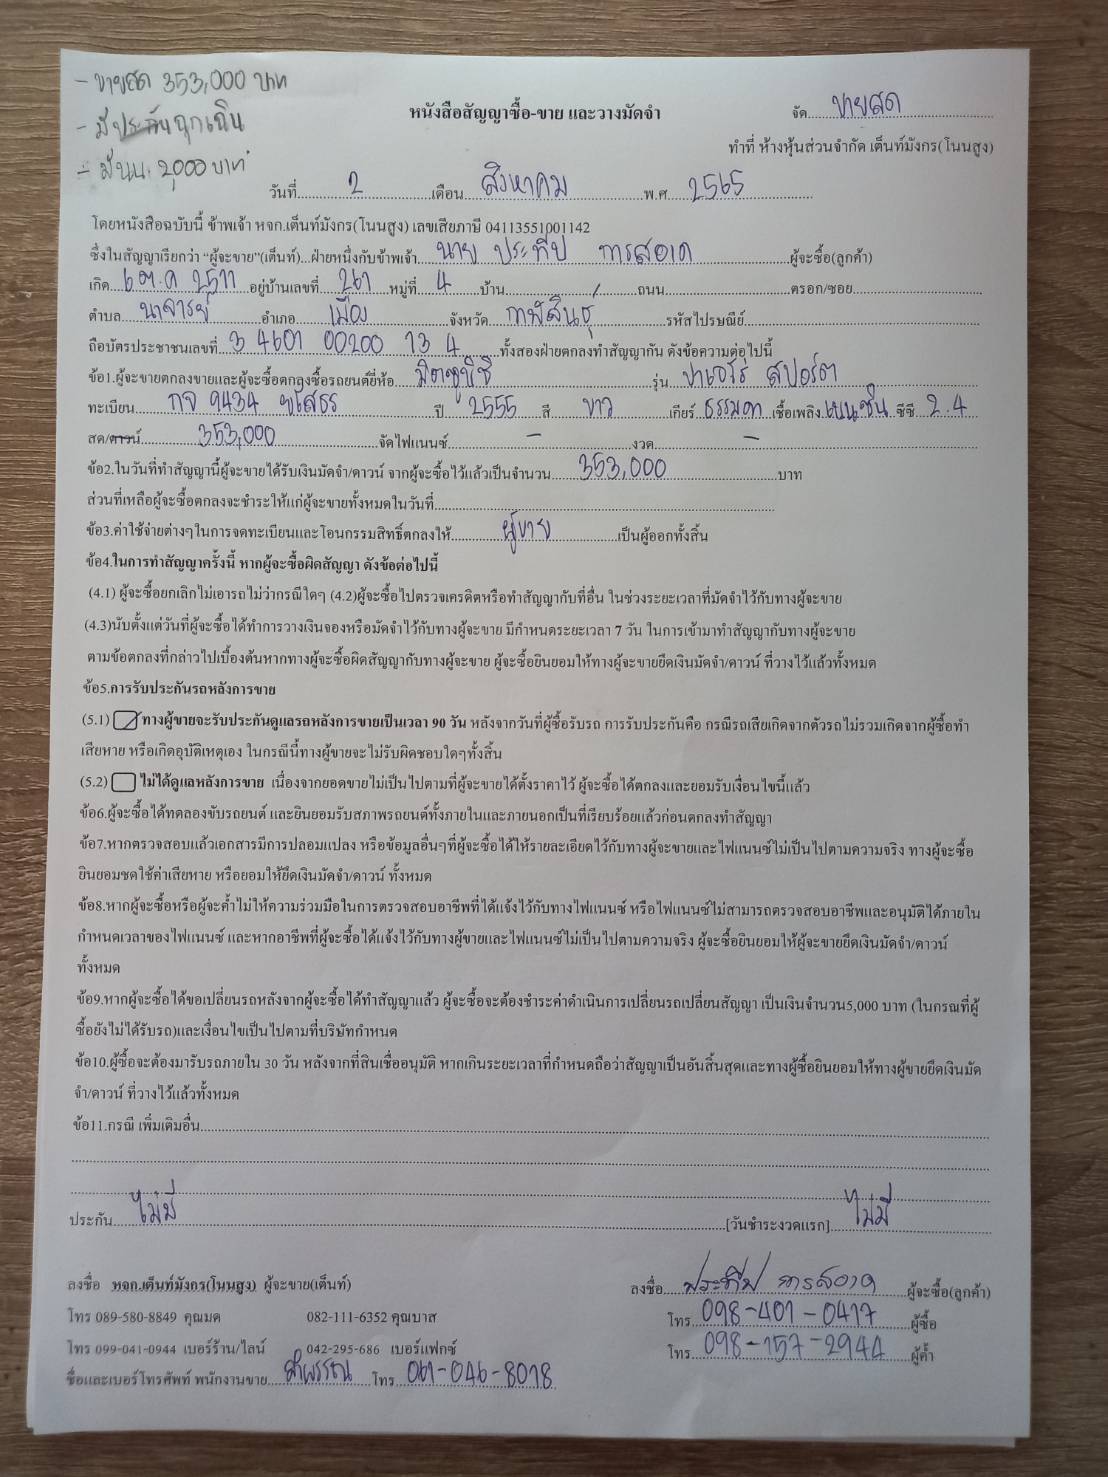 - ขายสด 353,000 บาท
- มีประกันฉุกเฉิน
- มีนน. 2,000 บาท
หนังสือสัญญาซื้อ-ขาย และวางมัดจำ
จัด ขายสด
ทำที่ ห้างหุ้นส่วนจำกัด เต็นท์มังกร(โนนสูง)
วันที่ 2 เดือน สิงหาคม พ.ศ. 2565
โดยหนังสือฉบับนี้ ข้าพเจ้า หจก.เต็นท์มังกร(โนนสูง) เลขเสียภาษี 04113551001142
ซึ่งในสัญญาเรียกว่า “ผู้จะขาย”(เต็นท์)...ฝ่ายหนึ่งกับข้าพเจ้า นาย ประทีป การสอาด ผู้จะซื้อ(ลูกค้า)
เกิด 6 ต.ค 2511 อยู่บ้านเลขที่ 261 หมู่ที่ 4 บ้าน ถนน ตรอก/ซอย
ตำบล นาจารย์ อำเภอ เมือง จังหวัด กาฬสินธุ์ รหัสไปรษณีย์
ถือบัตรประชาชนเลขที่ 3 4601 00200 13 4 ทั้งสองฝ่ายตกลงทำสัญญากัน ดังข้อความต่อไปนี้
ข้อ1.ผู้จะขายตกลงขายและผู้จะซื้อตกลงซื้อรถยนต์ยี่ห้อ มิตซูบิชิ รุ่น ปาเจอโร่ สปอร์ต
ทะเบียน กจ 9434 ยโสธร ปี 2555 สี ขาว เกียร์ ธรรมดา เชื้อเพลิง เบนซิน ซีซี 2.4
สด/ดาวน์ 353,000 จัดไฟแนนซ์ - งวด -
ข้อ2.ในวันที่ทำสัญญานี้ผู้จะขายได้รับเงินมัดจำ/ดาวน์ จากผู้จะซื้อไว้แล้วเป็นจำนวน 353,000 บาท
ส่วนที่เหลือผู้จะซื้อตกลงจะชำระให้แก่ผู้จะขายทั้งหมดในวันที่
ข้อ3.ค่าใช้จ่ายต่างๆในการจดทะเบียนและโอนกรรมสิทธิ์ตกลงให้ ผู้ขาย เป็นผู้ออกทั้งสิ้น
ข้อ4.ในการทำสัญญาครั้งนี้ หากผู้จะซื้อผิดสัญญา ดังข้อต่อไปนี้
(4.1) ผู้จะซื้อยกเลิกไม่เอารถไม่ว่ากรณีใดๆ (4.2)ผู้จะซื้อไปตรวจเครดิตหรือทำสัญญากับที่อื่น ในช่วงระยะเวลาที่มัดจำไว้กับทางผู้จะขาย
(4.3)นับตั้งแต่วันที่ผู้จะซื้อได้ทำการวางเงินจองหรือมัดจำไว้กับทางผู้จะขาย มีกำหนดระยะเวลา 7 วัน ในการเข้ามาทำสัญญากับทางผู้จะขาย
ตามข้อตกลงที่กล่าวไปเบื้องต้นหากทางผู้จะซื้อผิดสัญญากับทางผู้จะขาย ผู้จะซื้อยินยอมให้ทางผู้จะขายยึดเงินมัดจำ/ดาวน์ ที่วางไว้แล้วทั้งหมด
ข้อ5.การรับประกันรถหลังการขาย
(5.1) ทางผู้ขายจะรับประกันดูแลรถหลังการขายเป็นเวลา 90 วัน หลังจากวันที่ผู้ซื้อรับรถ การรับประกันคือ กรณีรถเสียเกิดจากตัวรถไม่รวมเกิดจากผู้ซื้อทำ
เสียหาย หรือเกิดอุบัติเหตุเอง ในกรณีนี้ทางผู้ขายจะไม่รับผิดชอบใดๆทั้งสิ้น
(5.2) ไม่ได้ดูแลหลังการขาย เนื่องจากยอดขายไม่เป็นไปตามที่ผู้จะขายได้ตั้งราคาไว้ ผู้จะซื้อได้ตกลงและยอมรับเงื่อนไขนี้แล้ว
ข้อ6.ผู้จะซื้อได้ทดลองขับรถยนต์ และยินยอมรับสภาพรถยนต์ทั้งภายในและภายนอกเป็นที่เรียบร้อยแล้วก่อนตกลงทำสัญญา
ข้อ7.หากตรวจสอบแล้วเอกสารมีการปลอมแปลง หรือข้อมูลอื่นๆที่ผู้จะซื้อได้ให้รายละเอียดไว้กับทางผู้จะขายและไฟแนนซ์ไม่เป็นไปตามความจริง ทางผู้จะซื้อ
ยินยอมชดใช้ค่าเสียหาย หรือยอมให้ยึดเงินมัดจำ/ดาวน์ ทั้งหมด
ข้อ8.หากผู้จะซื้อหรือผู้จะค้ำไม่ให้ความร่วมมือในการตรวจสอบอาชีพที่ได้แจ้งไว้กับทางไฟแนนซ์ หรือไฟแนนซ์ไม่สามารถตรวจสอบอาชีพและอนุมัติได้ภายใน
กำหนดเวลาของไฟแนนซ์ และหากอาชีพที่ผู้จะซื้อได้แจ้งไว้กับทางผู้ขายและไฟแนนซ์ไม่เป็นไปตามความจริง ผู้จะซื้อยินยอมให้ผู้จะขายยึดเงินมัดจำ/ดาวน์
ทั้งหมด
ข้อ9.หากผู้จะซื้อได้ขอเปลี่ยนรถหลังจากผู้จะซื้อได้ทำสัญญาแล้ว ผู้จะซื้อจะต้องชำระค่าดำเนินการเปลี่ยนรถเปลี่ยนสัญญา เป็นเงินจำนวน5,000 บาท (ในกรณที่ผู้
ซื้อยังไม่ได้รับรถ)และเงื่อนไขเป็นไปตามที่บริษัทกำหนด
ข้อ10.ผู้ซื้อจะต้องมารับรถภายใน 30 วัน หลังจากที่สินเชื่ออนุมัติ หากเกินระยะเวลาที่กำหนดถือว่าสัญญาเป็นอันสิ้นสุดและทางผู้ซื้อยินยอมให้ทางผู้ขายยึดเงินมัด
จำ/ดาวน์ ที่วางไว้แล้วทั้งหมด
ข้อ11.กรณี เพิ่มเติมอื่น
ประกัน ไม่มี [วันชำระงวดแรก] ไม่มี
ลงชื่อ หจก.เต็นท์มังกร(โนนสูง) ผู้จะขาย(เต็นท์) ลงชื่อ ประทีป การสอาด ผู้จะซื้อ(ลูกค้า)
โทร 089-580-8849 คุณมด 082-111-6352 คุณบาส โทร 098-401-0417 ผู้ซื้อ
โทร 099-041-0944 เบอร์ร้าน/ไลน์ 042-295-686 เบอร์แฟกซ์ โทร 098-157-2944 ผู้ค้ำ
ชื่อและเบอร์โทรศัพท์ พนักงานขาย โทร 061-046-8018